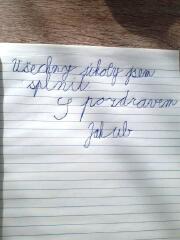 Všechny úkoly jsem
splnil
S pozdravem
Jakub